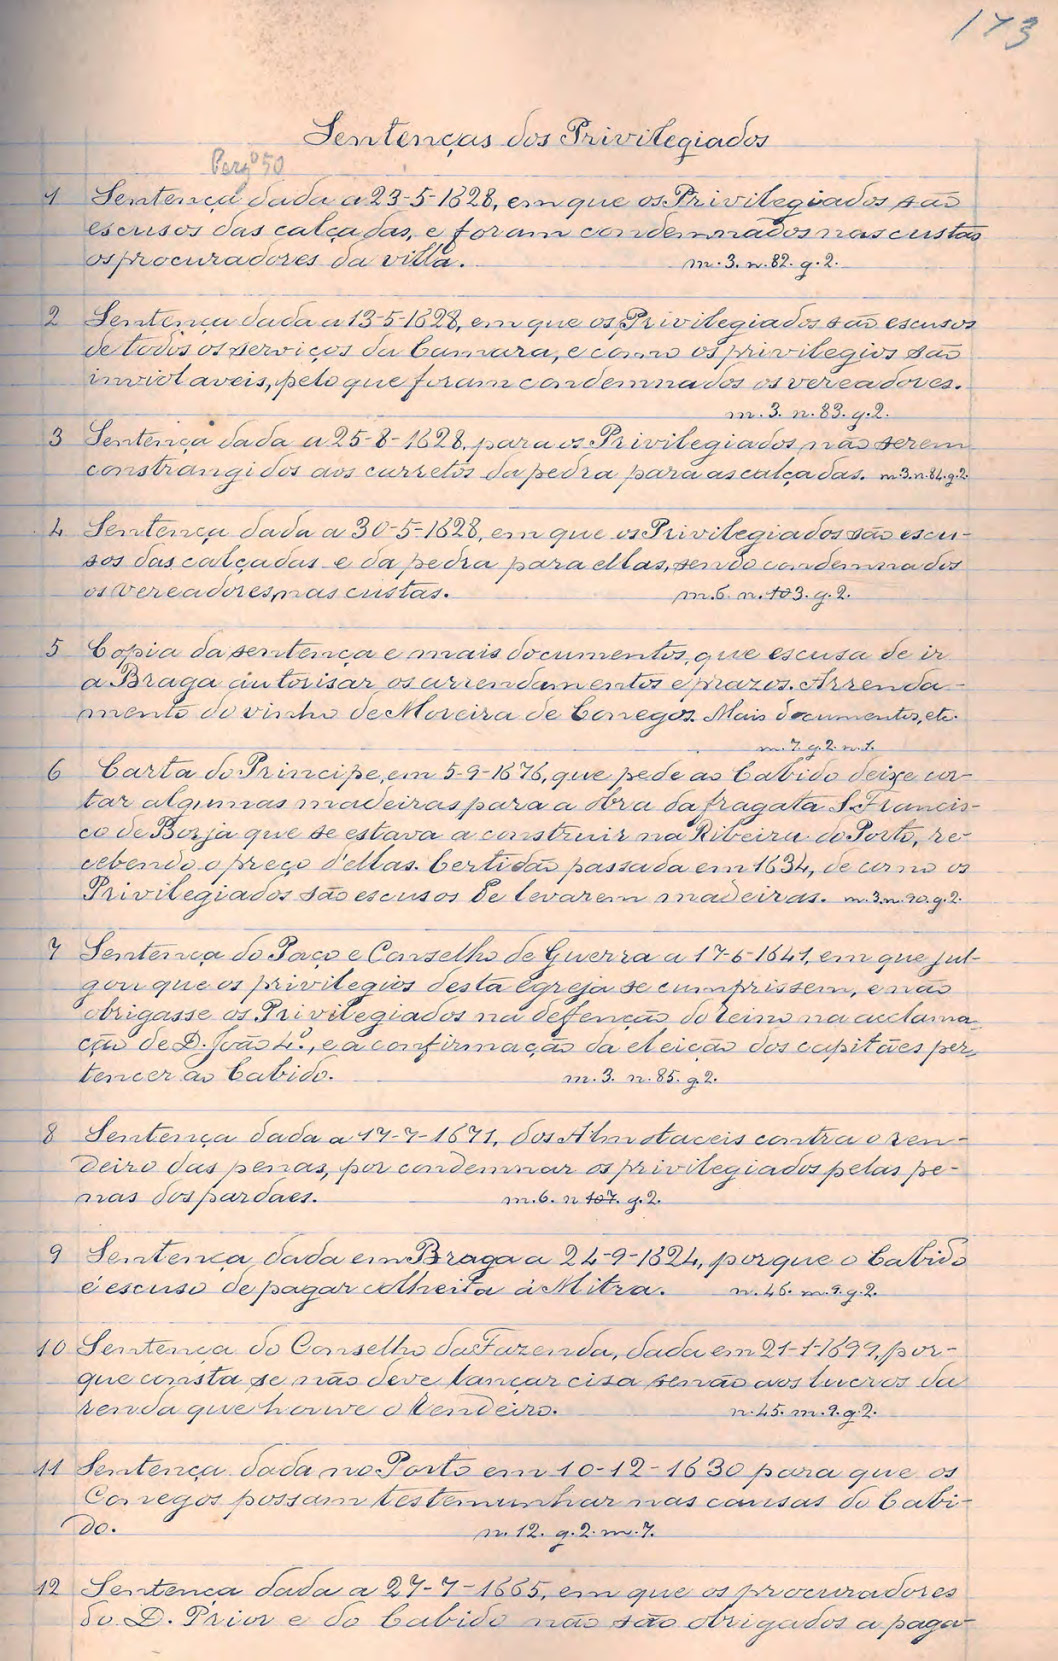 173
Sentenças dos Privilegiados
50
1 Sentença dada a 23-5-1628, em que os Privilegiados são
escusos das calçadas, e foram condemnados nas custas
os procuradores da villa. m. 3. n. 82. g. 2.
2 Sentença dada a 13-5-1628, em que os Privilegiados são escusos
de todos os serviços da Camara, e como os privilegios são
inviolaveis, pelo que foram condemnados os vereadores.
m. 3. n. 83. g. 2.
3 Sentença dada a 25-8-1628, para os Privilegiados não serem
constrangidos aos carretos da pedra para as calçadas. m. 3. n. 84. g. 2.
4 Sentença dada a 30-5-1628, em que os Privilegiados são escu-
sos das calçadas e da pedra para ellas, sendo condemnados
os vereadores, nas custas. m. 6. n. 103. g. 2.
5 Copia da sentença e mais documentos, que escusa de ir
a Braga autorisar os arrendamentos e prazos. Arrenda-
mento do vinho de Moreira de Conegos. Mais documentos, etc.
m. 7. g. 2. n. 1.
6 Carta do Principe, em 5-9-1676, que pede ao Cabido deixe cor-
tar algumas madeiras para a obra da fragata S. Francis-
co de Borja que se estava a construir na Ribeira do Porto, re-
cebendo o preço d'ellas. Certidão passada em 1634, de como os
Privilegiados são escusos de levarem madeiras. m. 3. n. 90. g. 2.
7 Sentença do Paço e Conselho de Guerra a 17-6-1641, em que jul-
gou que os privilegios desta egreja se cumprissem, e não
obrigasse os Privilegiados na defenção do reino na acclama-
ção de D. João 4º, e a confirmação da eleição dos capitães per-
tencer ao Cabido. m. 3. n. 85. g. 2.
8 Sentença dada a 17-7-1671, dos Almotaceis contra o ren-
deiro das penas, por condemnar os privilegiados pelas pe-
nas dos pardaes. m. 6. n. 107. g. 2.
9 Sentença, dada em Braga a 24-9-1624, porque o Cabido
é escuso de pagar colheita á Mitra. n. 46. m. 9. g. 2.
10 Sentença do Conselho da Fazenda, dada em 21-1-1699, por-
que consta se não deve lançar cisa senão aos lucros da
renda que houve o rendeiro. n. 45. m. 9. g. 2.
11 Sentença dada no Porto em 10-12-1630 para que os
Conegos possam testemunhar nas causas do Cabi-
do. n. 12. g. 2. m. 7.
12 Sentença dada a 27-7-1665, em que os procuradores
do D. Prior e do Cabido não são obrigados a paga-